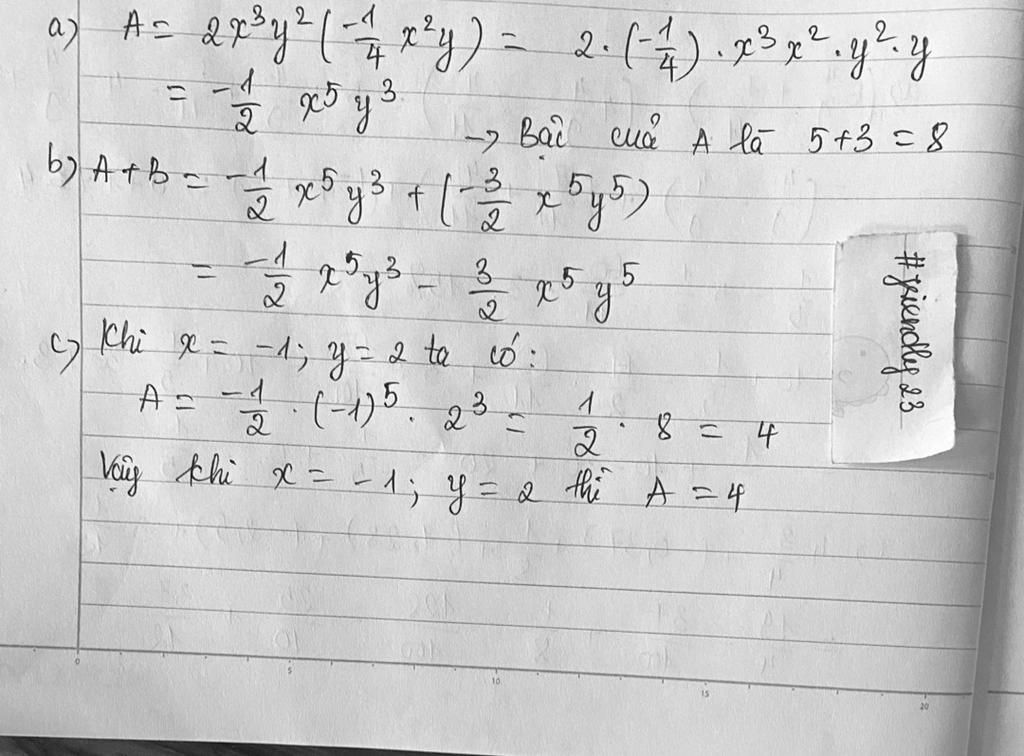 a) A = 2x³y² (-1/4 x²y) = 2 · (-1/4) · x³x² · y² · y
= -1/2 x⁵y³
→ Bậc cuả A là 5+3 = 8
b) A+B = -1/2 x⁵y³ + (-3/2 x⁵y⁵)
= -1/2 x⁵y³ - 3/2 x⁵y⁵
c) Khi x = -1; y = 2 ta có:
A = -1/2 · (-1)⁵ · 2³ = 1/2 · 8 = 4
Vậy khi x = -1; y = 2 thì A = 4
#friendly23
0 5 10 15 20